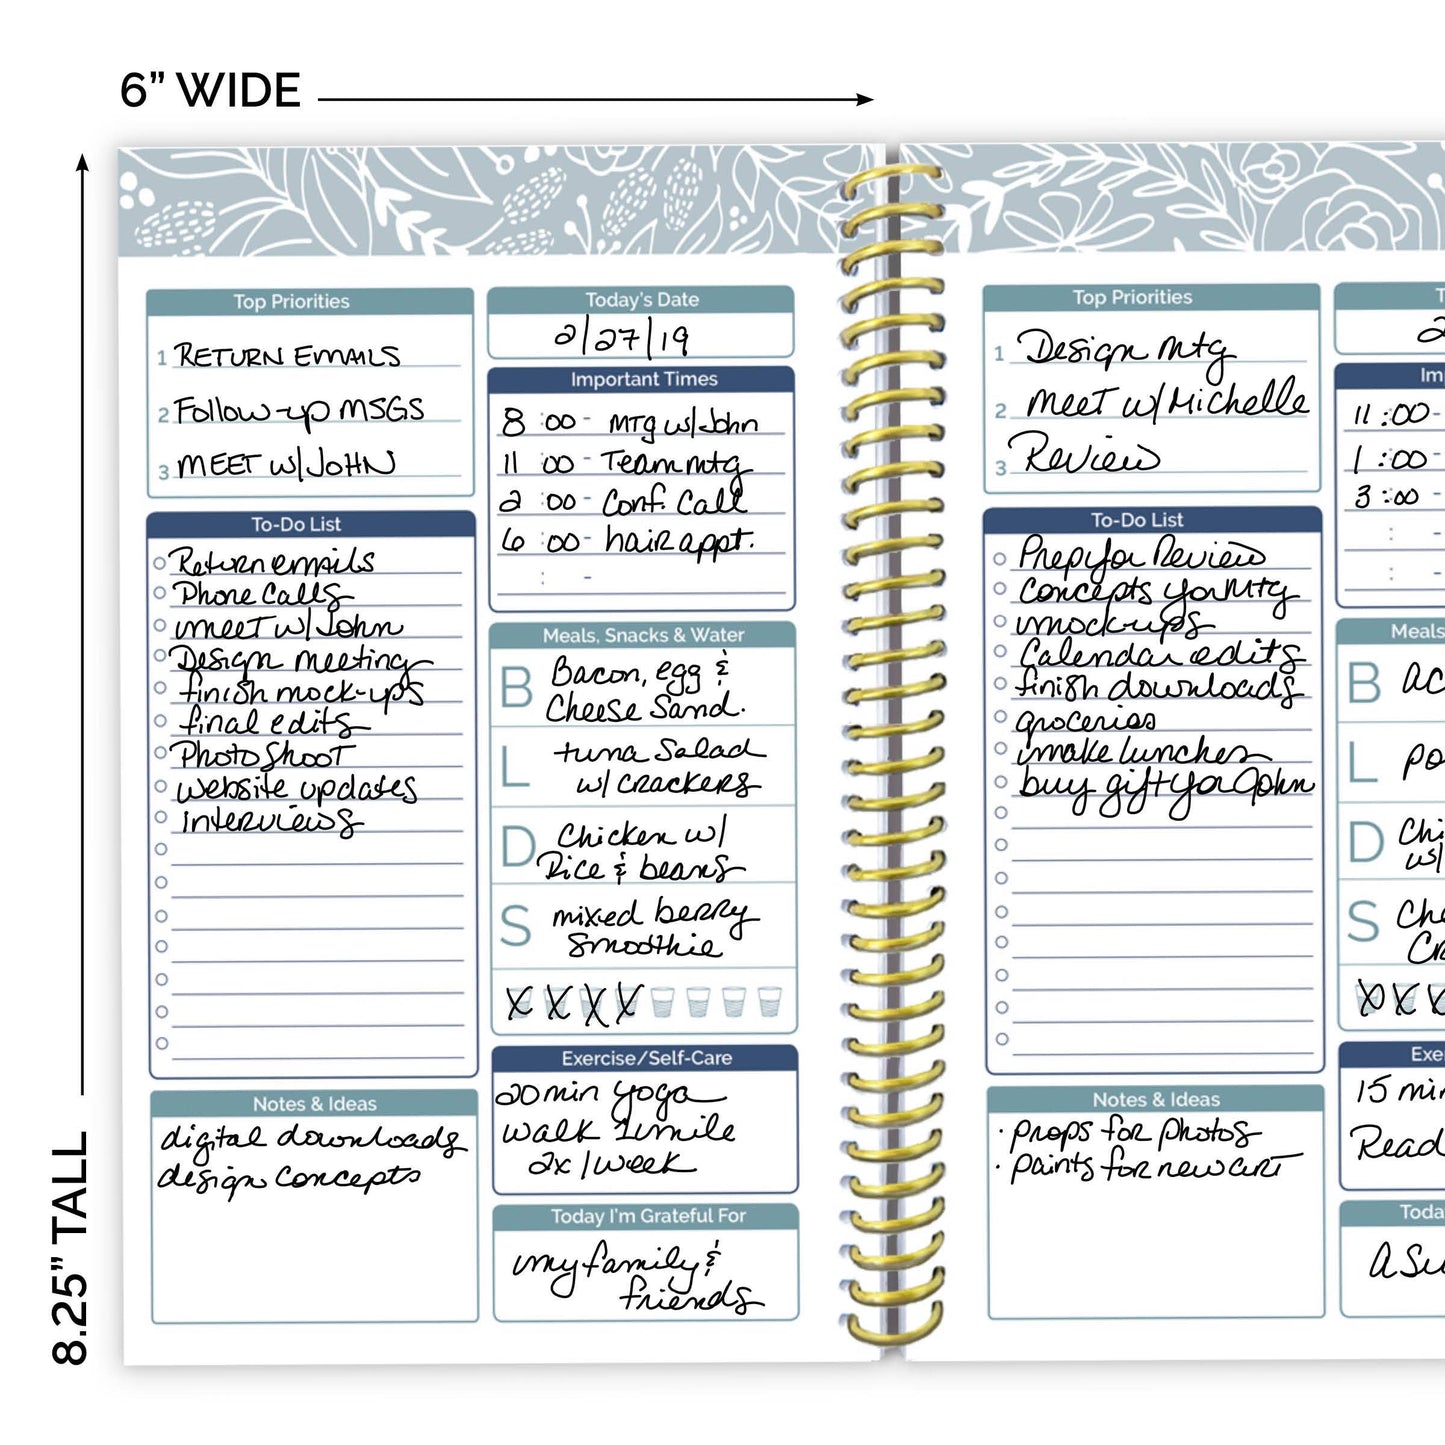 6” WIDE
8.25” TALL
Top Priorities
1 RETURN EMAILS
2 Follow-up MSGS
3 MEET w/JOHN
To-Do List
Return emails
Phone Calls
meet w/John
Design meeting
finish mock-ups
final edits
Photo Shoot
website updates
interviews
Notes & Ideas
digital downloads
design concepts
Today's Date
2/27/19
Important Times
8 :00 - MTg w/John
11 :00 - Team mtg
2 :00 - Conf. Call
6 :00 - hair appt.
: -
Meals, Snacks & Water
B Bacon, egg &
Cheese Sand.
L tuna Salad
w/ crackers
D Chicken w/
Rice & beans
S mixed berry
Smoothie
X X X X
Exercise/Self-Care
20 min yoga
walk 1 mile
2x/week
Today I'm Grateful For
my family &
friends
Top Priorities
1 Design mtg
2 meet w/Michelle
3 Review
To-Do List
Prep for Review
Concepts for Mtg
mockups
Calendar edits
finish downloads
groceries
make lunches
buy gift for John
Notes & Ideas
· props for photos
· paints for new art
T
2
Im
11 :00 -
1 :00 -
3 :00 -
: -
: -
Meals
B ac
L po
D Chi
w/
S Che
Cra
X X
Exe
15 min
Read
Toda
A Su